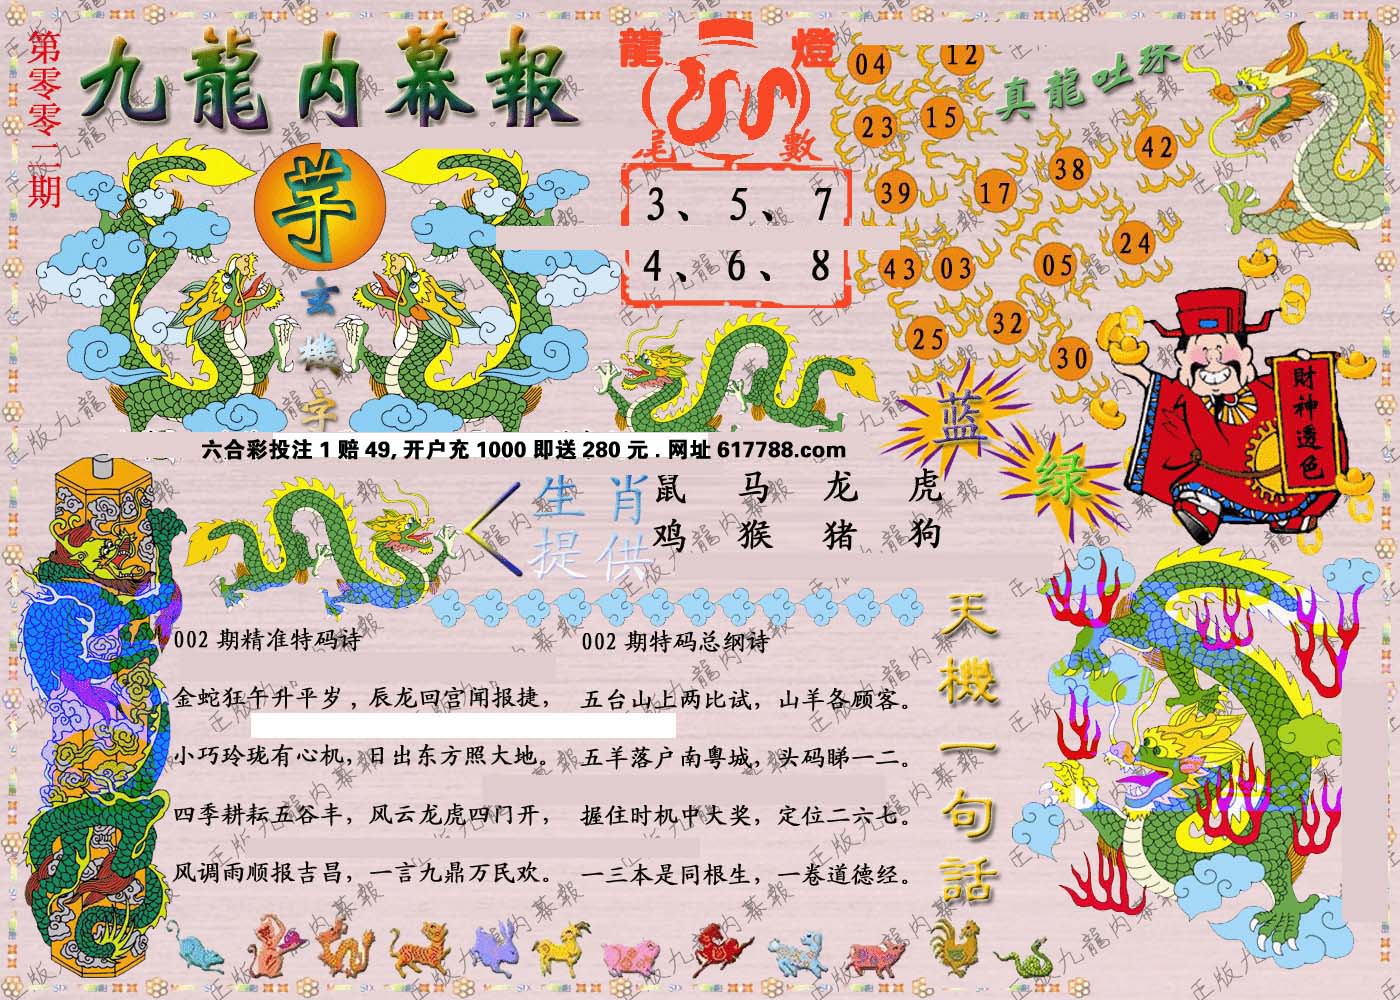 第零零二期
九龍内幕報
龍燈
尾數
3、5、7
4、6、8
真龍吐珠
04
12
23
15
38
42
39
17
24
43
03
05
25
32
30
芋
玄機字
蓝
绿
財神透色
六合彩投注1赔49,开户充1000即送280元.网址617788.com
生肖提供
鼠 马 龙 虎
鸡 猴 猪 狗
002期精准特码诗
金蛇狂午升平岁，辰龙回宫闻报捷，
小巧玲珑有心机，日出东方照大地。
四季耕耘五谷丰，风云龙虎四门开，
风调雨顺报吉昌，一言九鼎万民欢。
002期特码总纲诗
五台山上两比试，山羊各顾客。
五羊落户南粤城，头码睇一二。
握住时机中大奖，定位二六七。
一三本是同根生，一卷道德经。
天機一句話
正版九龍内幕報